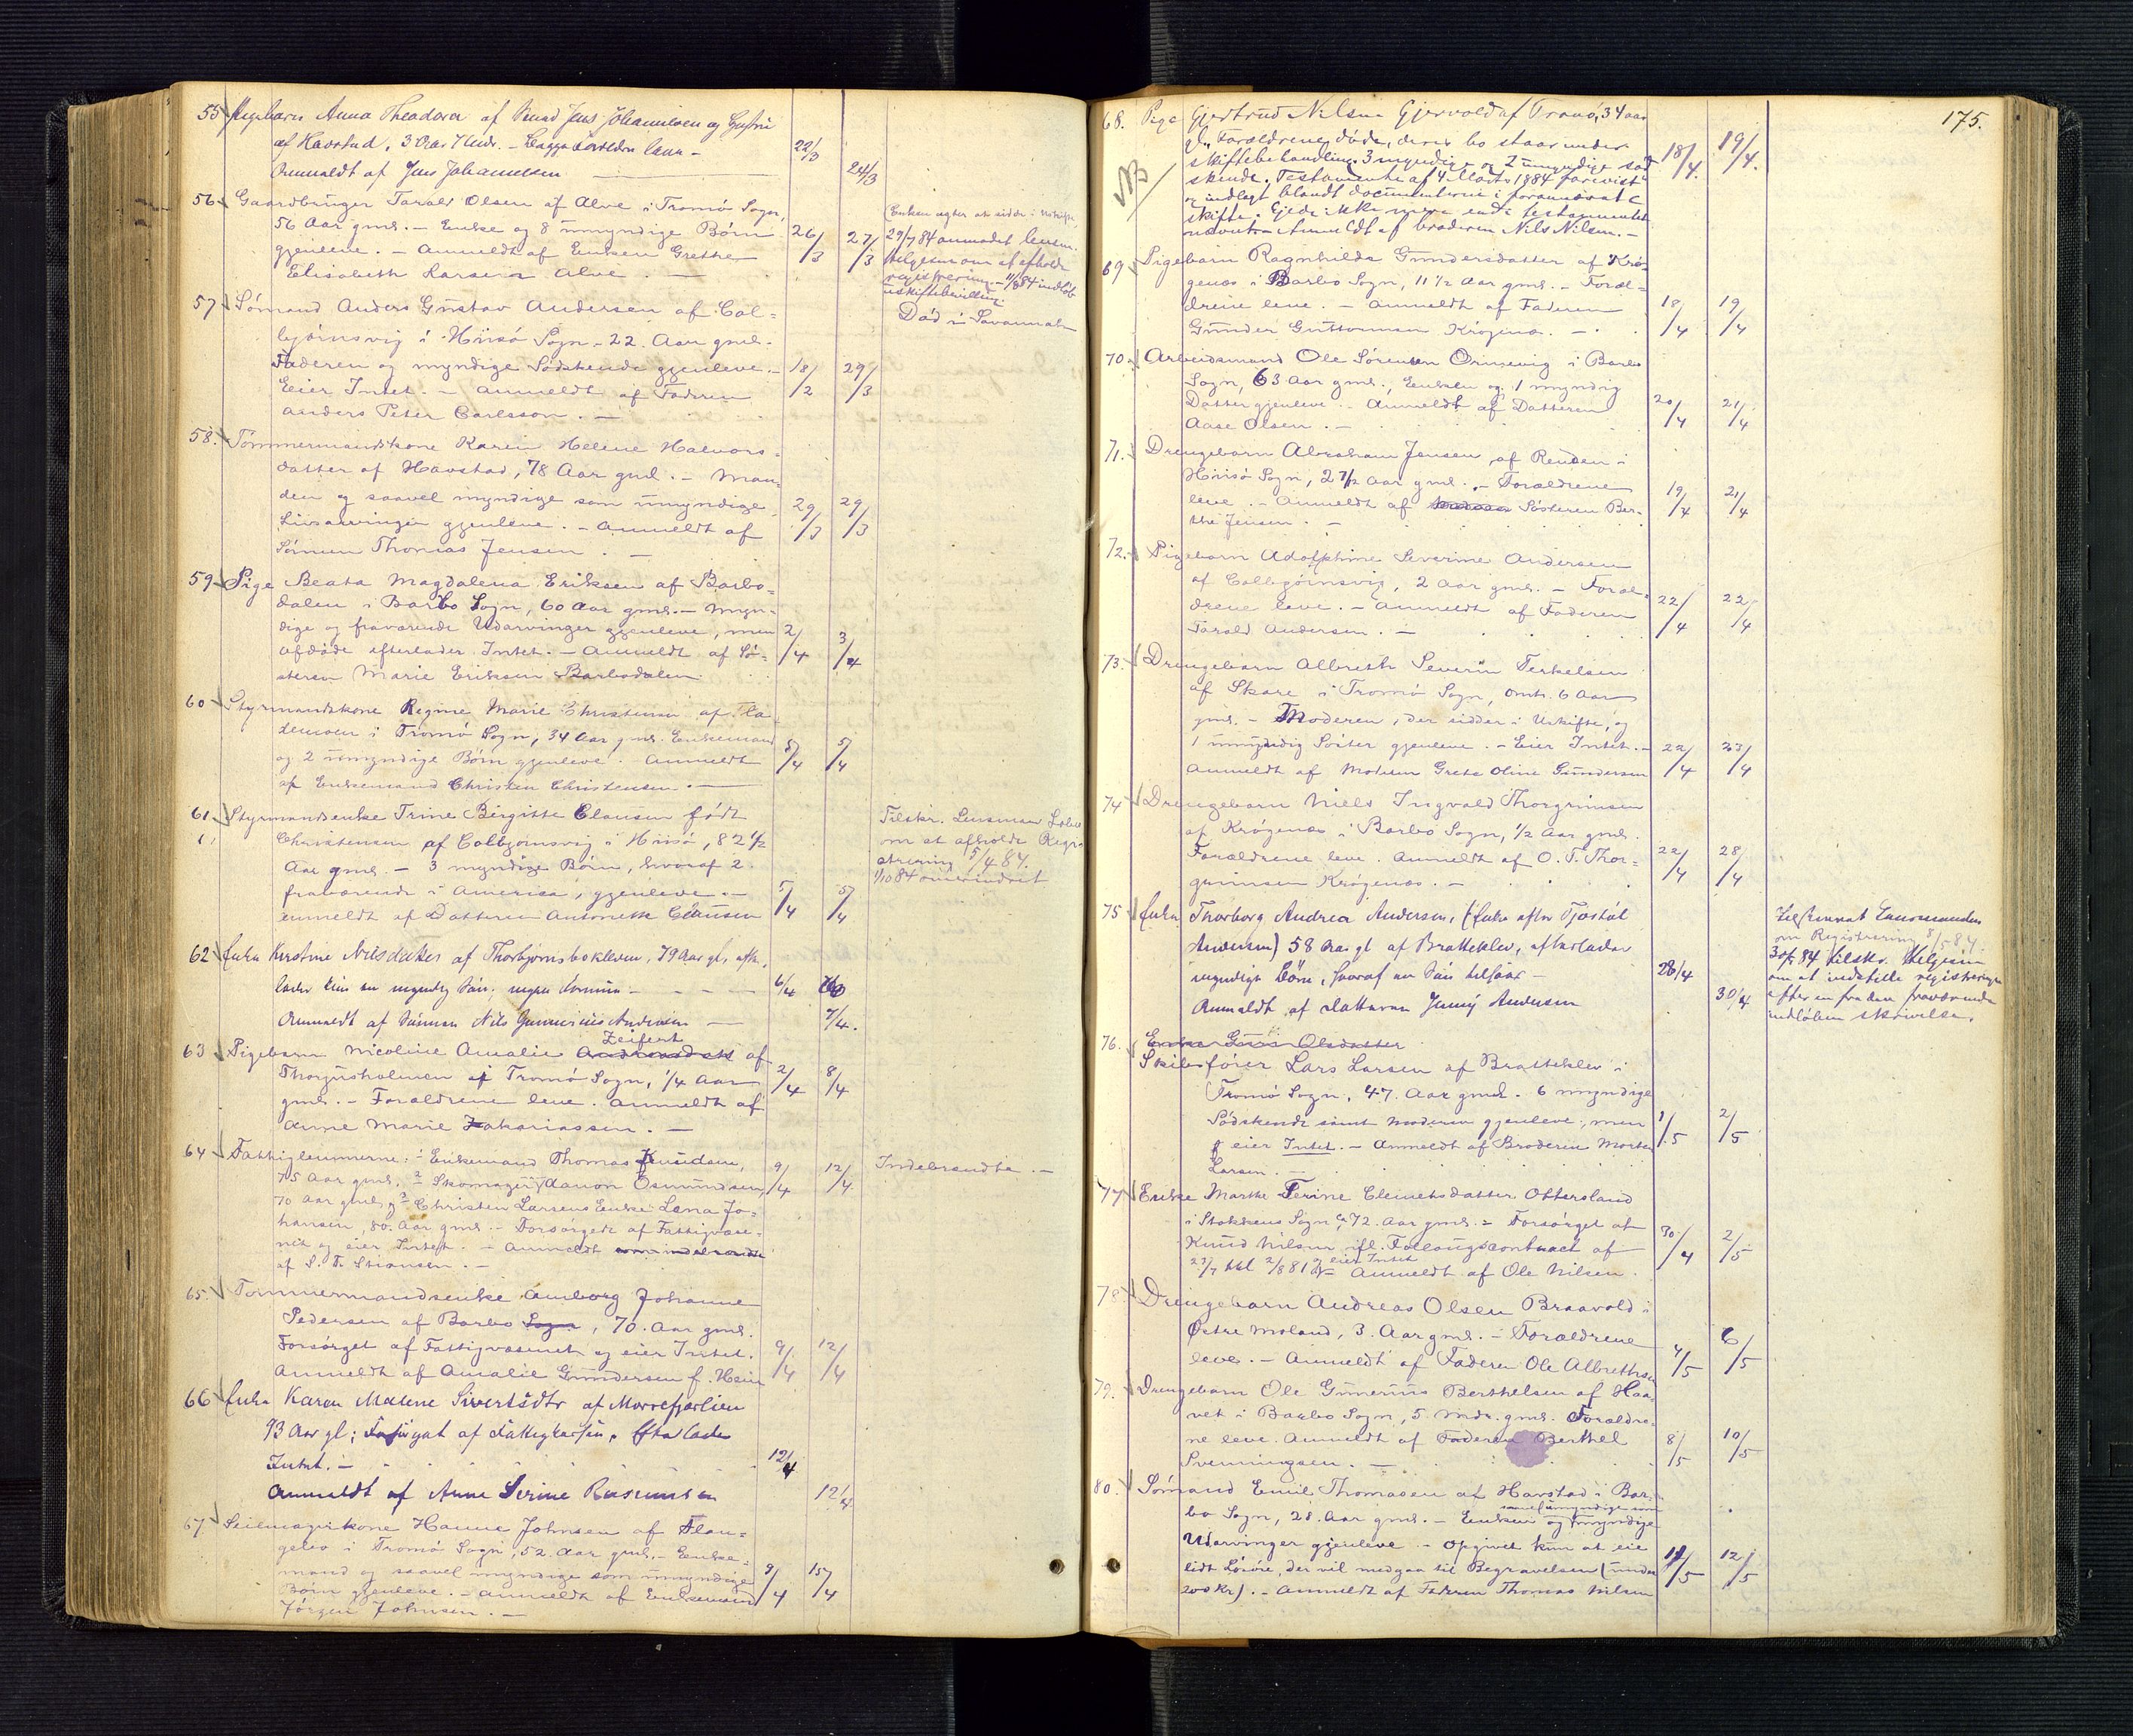 55 Pigebarn Anna Theodora af Jens Johannesen og Hustru
af Havstad, 3 Aar 7 Mdr. - Begge Forældre leve -
Anmeldt af Jens Johannesen 22/3 24/3
56 Gaardbruger Tarald Olsen af Alve i Tromø Sogn,
56 Aar gml. - Enke og 8 umyndige Børn
gjenleve. - Anmeldt af Enken Grethe 26/3 27/3
Elisabeth Larsen Alve. -
Enken agter at sidde i Uskifte,
29/7 84 anmodet lensm.
Helgesen om at afholde
registrering. - 11/8 84 indløb
uskiftebevilling.
57 Sømand Anders Gustav Andersen af Col-
bjørnsvig i Hisø Sogn - 22 Aar gml.
Faderen og myndige Sødskende gjenleve. - 18/2 29/3
Eier Intet. - Anmeldt af Faderen
Anders Peter Carlsson. -
Død i Savannah
58. Tømmermandskone Karen Helene Halvors-
datter af Havstad, 78 Aar gml. - Man-
den og saavel myndige som umyndige 29/3 29/3
Livsarvinger gjenleve. - Anmeldt af
Sønnen Thomas Jensen. -
59 Pige Beata Magdalena Eriksen af Barbo-
dalen i Barbo Sogn, 60 Aar gml. - Myn-
dige og fraværende Udarvinger gjenleve, men 2/4 3/4
afdøde efterlader Intet. - Anmeldt af Sø-
steren Marie Eriksen Barbodalen
60 Styrmandskone Regine Marie Christensen af Fla-
demoen i Tromø Sogn, 34 Aar gml. Enkemand
og 2 umyndige Børn gjenleve. - Anmeldt 5/4 5/4
af Enkemand Christen Christensen. -
61 Styrmandsenke Trine Birgitte Clausen født
Christensen af Colbjørnsvig i Hisø, 82 1/2
Aar gml. - 3 myndige Børn, hvoraf 2
fraværende i America, gjenleve. - 5/4 5/4
Anmeldt af Datteren Antonette Clausen
Tilskr. Lensmand
om at afholde Regi-
strering 5/4 84.
1/10 84 omerindret
62 Enke Kirstine Nilsdatter af Thorbjørnsbokleven, 79 Aar gl, efter-
lader kun en myndig Søn, ingen Formue - 6/4
Anmeldt af Sønnen Nils Gunerius Andersen - 7/4.
63 Pigebarn Nicoline Amalie Zeifert af
Thorgusholmen i Tromø Sogn, 1/4 Aar 2/4 8/4
gml. - Forældrene leve. Anmeldt af
Anne Marie Zakariassen. -
64 Fattiglemmerne: Enkemand Thomas Knudsen,
75 Aar gml, 2 Skomager Aanon Osmundsen, 9/4 12/4
70 Aar gml, og 3 Christen Larsens Enke Lena Jo-
hansen, 80 Aar gml. - Forsørgede af Fattigvæse-
net og eier Intet. - Anmeldt
af S. T. Stiansen. -
Indebrændte. -
65. Tømmermandsenke Amborg Johanne
Pedersen af Barbo Sogn, 70 Aar gml.
Forsørget af Fattigvæsenet og eier Intet. 9/4 12/4
Anmeldt af Amalie Gundersen f. Hein
66 Enke Karen Malene Sivertsdtr af Morrefjærlien
93 Aar gl; Forsørget af Fattigkassen, Efterlader
Intet. - 12/4
Anmeldt af Anne Serine Rasmussen 12/4
67 Seilmagerkone Hanne Johnsen af Flan-
gebo i Tromø Sogn, 52 Aar gml. - Enke-
mand og saavel myndige som umyndige 9/4 15/4
Børn gjenleve. - Anmeldt af Enkemand
Jørgen Johnsen. -
175.
68. Pige Gjertrud Nilsen Gjervold af Tromø, 34 aar
gl. Forældrene døde, deres bo staar under
skiftebehandling. 3 myndige og 2 umyndige sød- 18/4. 19/4.
skende. Testamente af 4 Marts 1884 forevist
og indlagt blandt documenterne i forannævnte
skifte. Eiede ikke mere end i testamentet
nævnt. Anmeldt af broderen Nils Nilsen. -
NB
69 Pigebarn Ragnhilde Gundersdatter af Krø-
genæs i Barbo Sogn, 11 1/2 Aar gml. - Foræl-
drene leve. - Anmeldt af Faderen 18/4 19/4
Gunder Guttormsen Krøgenæs. -
70. Arbeidsmand Ole Sørensen Ormevig i Barbo
Sogn, 63 Aar gml., Enken og 1 myndig
Datter gjenleve. - Anmeldt af Datteren 20/4 21/4
Aase Olsen. -
71. Drengebarn Abraham Jensen af Renden i
Hisø Sogn, 2 7/12 Aar gml. - Forældrene
leve. - Anmeldt af Søsteren Ber- 19/4 21/4
the Jensen. -
72. Pigebarn Adolphine Severine Andersen
af Colbjørnsvig, 2 Aar gml. - Foræl-
drene leve. - Anmeldt af Faderen 22/4 22/4
Tarald Andersen. -
73. Drengebarn Albreth Severin Terkelsen
af Skare i Tromø Sogn, omtr. 6 Aar
gml. - Moderen, der sidder i Uskifte, og
1 umyndig Søster gjenleve. - Eier Intet. - 22/4 23/4
Anmeldt af Moderen Grete Oline Gundersen
74 Drengebarn Niels Ingvald Thorgrimsen
af Krøgenæs i Barbo Sogn, 1/2 Aar gml.
Forældrene leve. Anmeldt af O. T. Thor- 22/4 28/4
grimsen Krøgenæs. -
75 Enke Thorborg Andrea Andersen, (Enke efter Tjøstøl
Andersen) 58 Aar gl af Bratteklev, efterlader
myndige Børn, hvoraf en Søn tilsøes - 28/4
Anmeldt af Datteren Jenny Andersen 30/4
Tilskrevet Lensmanden
om Registrering 8/5 84.
30/7 84 tilskr. Helgesen
om at indstille registreringen
efter en fra den fraværende
indløben skrivelse.
76. Enke Guri Olsdatter
Skibsfører Lars Larsen af Bratteklev i
Tromø Sogn, 47 Aar gml. 6 myndige
Sødskende samt Moderen gjenleve, men 1/5 2/5
eier Intet. - Anmeldt af Broderen Morten
Larsen. -
77 Enke Marthe Terine Clemetsdatter Ottersland
i Stokkens Sogn, 72 Aar gml. - Forsørget af
Knud Nilsen ifl. Føllaugscontract af 30/4 2/5
27/7 tbl 2/8 81 og eier Intet - Anmeldt af Ole Nilsen.
78 Drengebarn Andreas Olsen Braavold i
Østre Moland, 3 Aar gml. - Forældrene
leve. - Anmeldt af Faderen Ole Albrethsen 4/5 6/5
79. Drengebarn Ole Gunerius Berthelsen af Haa-
vet i Barbo Sogn, 5 Mdr. gml. Forældre-
ne leve. Anmeldt af Faderen Berthel 8/5 10/5
Svenningsen. -
80. Sømand Emil Thomasen af Havstad i Bar-
bo Sogn, 28 Aar gml. - Enken og saavel umyndige som myndige
Udarvinger gjenleve. - Opgivet kun at eie
lidt Løsøre, der vil medgaa til Begravelsen (under 12/5
200 Kr). - Anmeldt af Faderen Thomas Nilsen